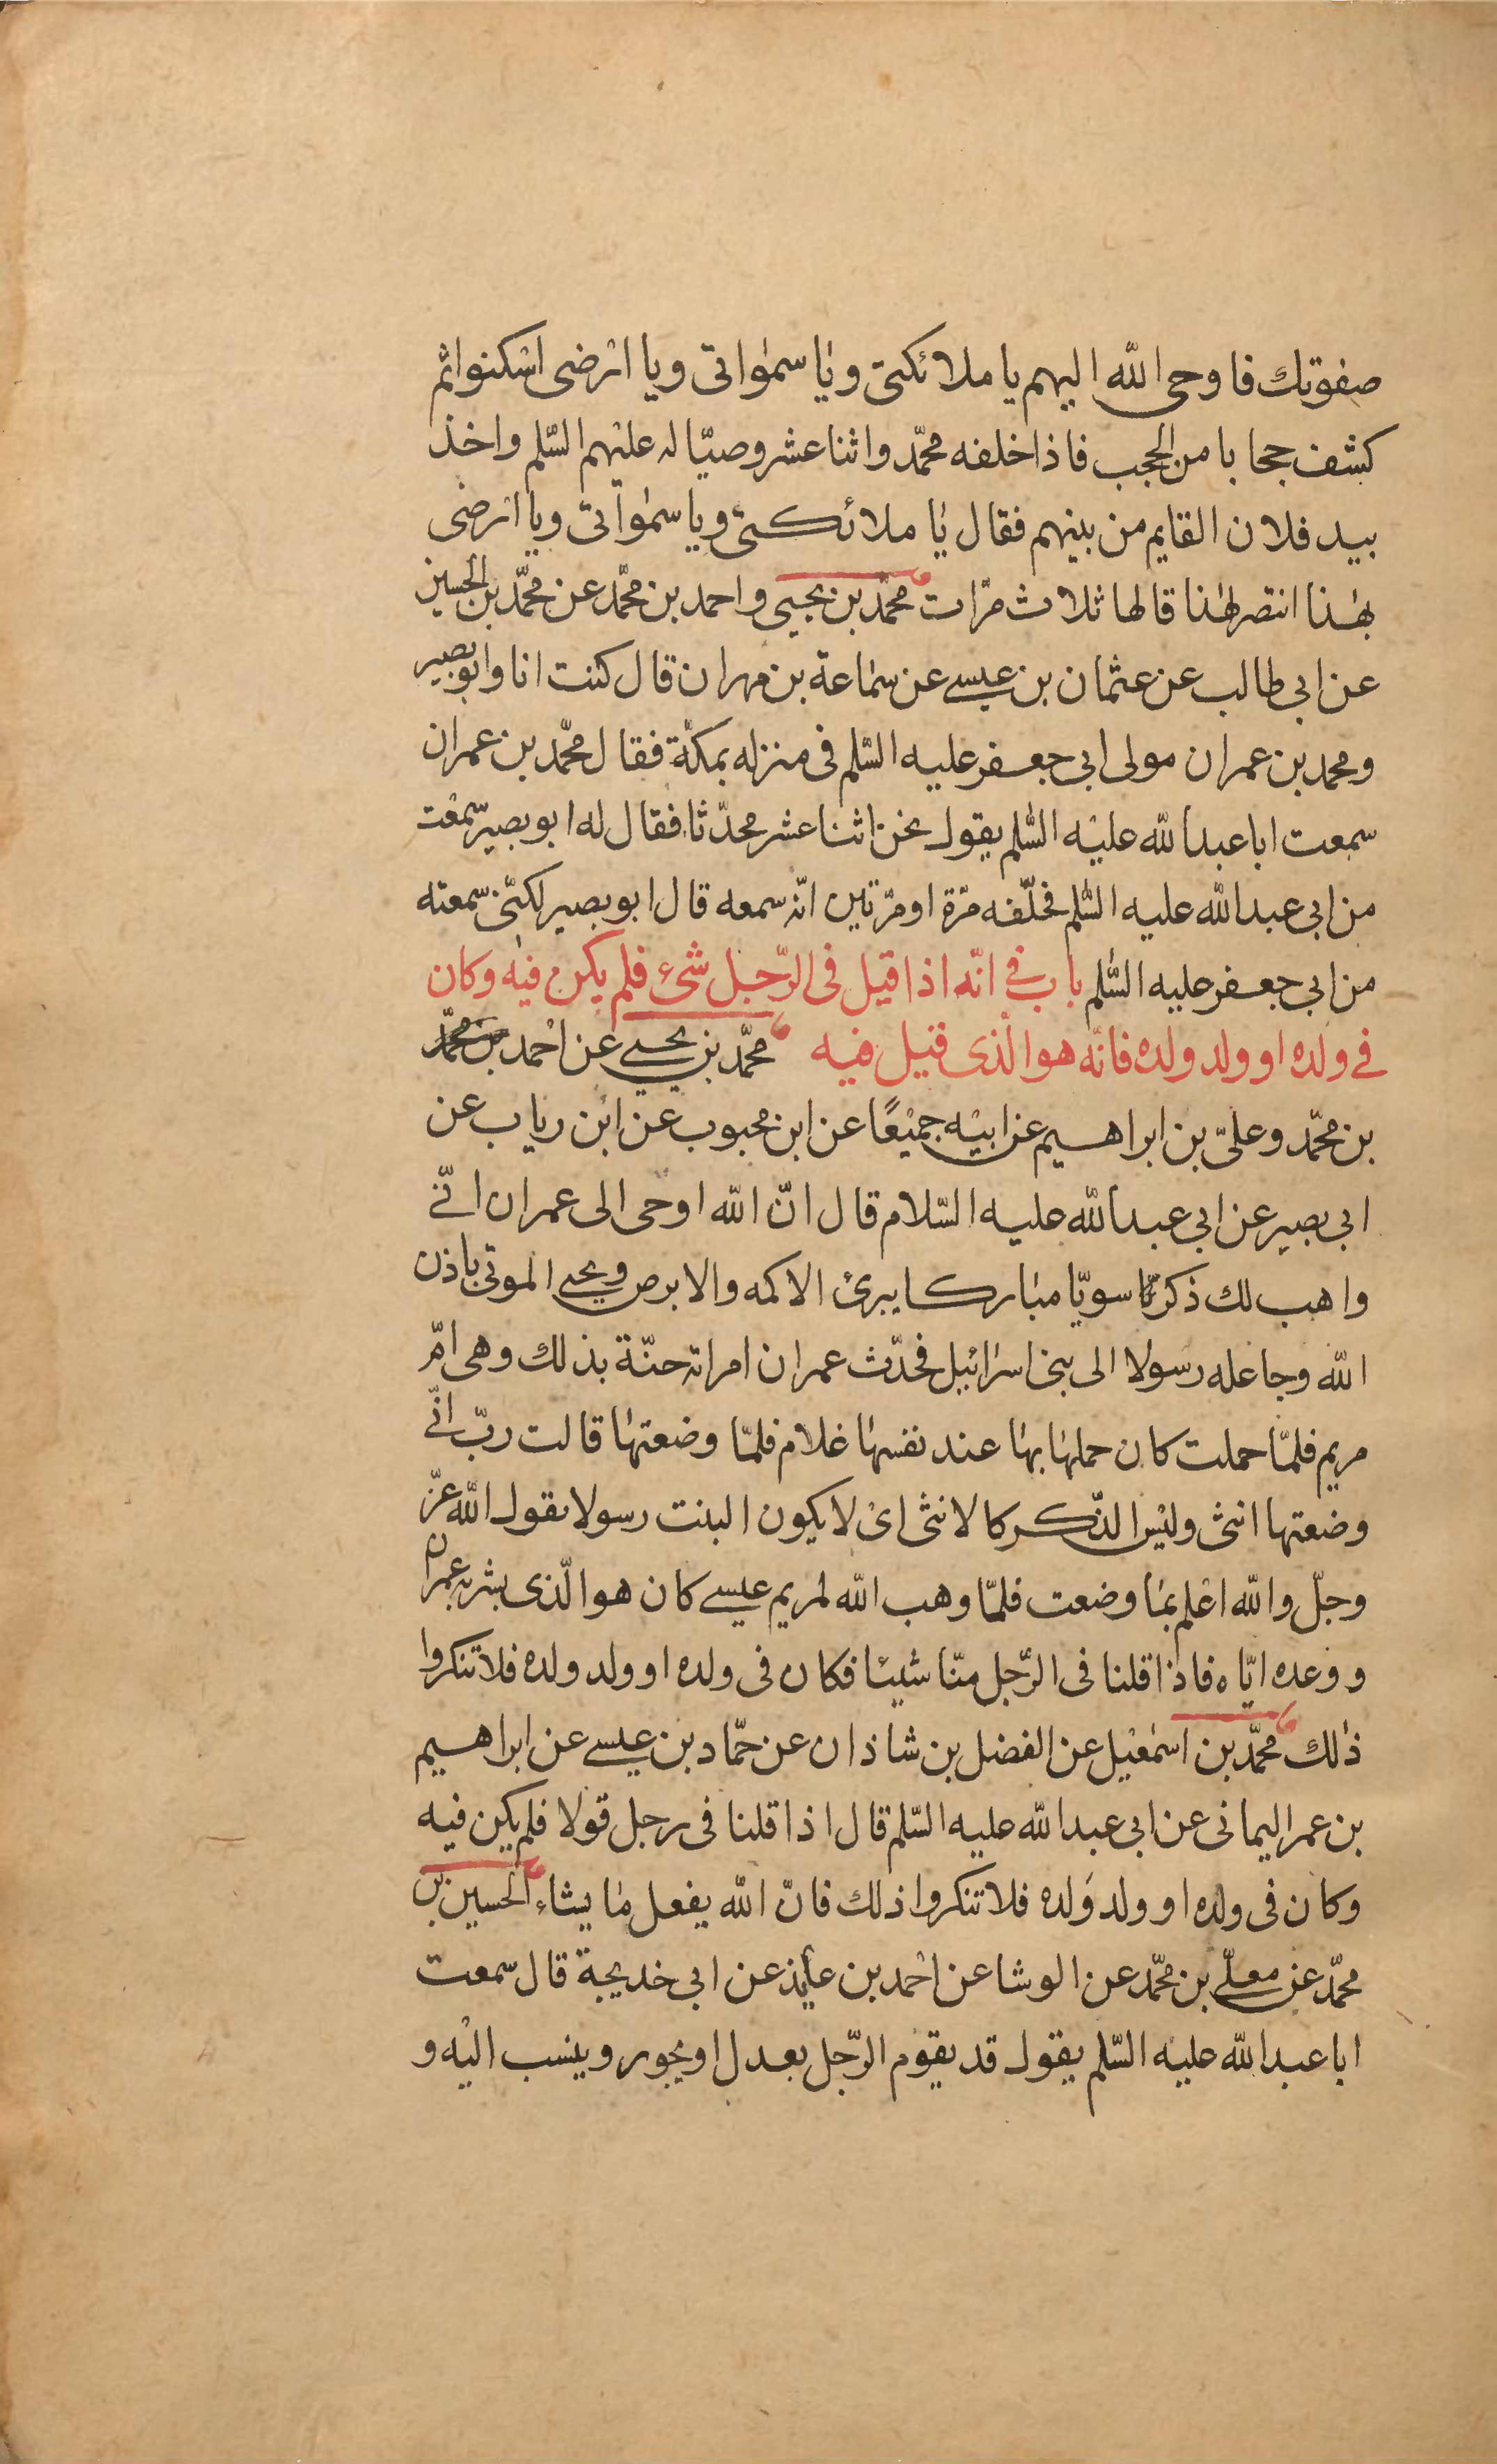 صفوتك فاوحى الله اليهم يا ملائكتى ويا سمواتى ويا ارضى اسكنوا ثم
كشف حجابا من الحجب فاذا خلفه محمّد واثنا عشر وصيّا له عليهم السّلم واخذ
بيد فلان القايم من بينهم فقال يا ملائكتى ويا سمواتى ويا ارضى
بهذا انتصر لهذا قالها ثلاث مرّات محمّد بن يحيى واحمد بن محمّد عن محمّد بن الحسين
عن ابى طالب عن عثمان بن عيسى عن سماعة بن مهران قال كنت انا وابو بصير
ومحمد بن عمران مولى ابى جعفر عليه السّلم فى منزله بمكّة فقال محمّد بن عمران
سمعت ابا عبد الله عليه السّلم يقول نحن اثنا عشر محدّثا فقال له ابو بصير سمعت
من ابى عبد الله عليه السّلم فحلّفه مرّة او مرّتين انّه سمعه قال ابو بصير لكنّى سمعته
من ابى جعفر عليه السّلم باب فى انّه اذا قيل فى الرّجل شىء فلم يكن فيه وكان
فى ولده او ولد ولده فانّه هو الّذى قيل فيه محمّد بن يحيى عن احمد بن محمّد
بن محمّد وعلىّ بن ابراهيم عن ابيه جميعًا عن ابن محبوب عن ابن رياب عن
ابى بصير عن ابى عبد الله عليه السّلام قال انّ الله اوحى الى عمران انّى
واهب لك ذكرا سويّا مباركا يبرئ الاكمه والابرص ويحيى الموتى باذن
الله وجاعله رسولا الى بنى اسرائيل فحدّث عمران امراته حنّة بذلك وهى امّ
مريم فلمّا حملت كان حملها بها عند نفسها غلام فلمّا وضعتها قالت ربّ انّى
وضعتها انثى وليس الذّكر كالانثى اى لا يكون البنت رسولا يقول الله عزّ
وجلّ والله اعلم بما وضعت فلمّا وهب الله لمريم عيسى كان هو الّذى بشر به عمران
ووعده ايّاه فاذا قلنا فى الرّجل منّا شيئا فكان فى ولده او ولد ولده فلا تنكروا
ذلك محمّد بن اسمعيل عن الفضل بن شاذان عن حمّاد بن عيسى عن ابراهيم
بن عمر اليمانى عن ابى عبد الله عليه السّلم قال اذا قلنا فى رجل قولا فلم يكن فيه
وكان فى ولده او ولد ولده فلا تنكروا ذلك فانّ الله يفعل ما يشاء الحسين بن
محمّد عن معلّى بن محمّد عن الوشا عن احمد بن عايذ عن ابى خديجة قال سمعت
ابا عبد الله عليه السّلم يقول قد يقوم الرّجل بعدل او بجور وينسب اليه و